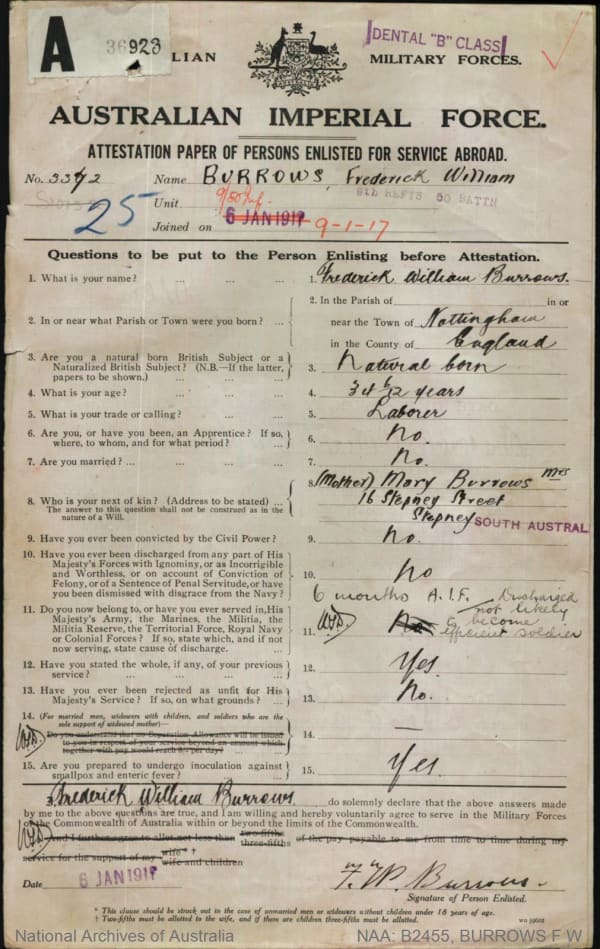 A 36923
DENTAL "B" CLASS
ALIAN MILITARY FORCES.
AUSTRALIAN IMPERIAL FORCE.
ATTESTATION PAPER OF PERSONS ENLISTED FOR SERVICE ABROAD.
No. 3372 Name BURROWS, Frederick William
25 Unit 9/50 Inf. 9TH REFTS 50 BATTN
Joined on 6 JAN 1917 9-1-17
Questions to be put to the Person Enlisting before Attestation.
1. What is your name? ... ... ... 1. Frederick William Burrows.
2. In or near what Parish or Town were you born? ... 2. In the Parish of in or
near the Town of Nottingham
in the County of England
3. Are you a natural born British Subject or a 3. Natural born
Naturalized British Subject? (N.B.—If the latter,
papers to be shown.) ... ... ...
4. What is your age? ... ... ... 4. 34 6/12 years
5. What is your trade or calling? ... ... 5. Laborer
6. Are you, or have you been, an Apprentice? If so, 6. No.
where, to whom, and for what period? ...
7. Are you married? ... ... ... ... 7. No.
8. Who is your next of kin? (Address to be stated) ... 8. (Mother) Mary Burrows Mrs
The answer to this question shall not be construed as in the 16 Stepney Street
nature of a Will. Stepney SOUTH AUSTRAL
9. Have you ever been convicted by the Civil Power? 9. No.
10. Have you ever been discharged from any part of His 10. No
Majesty's Forces with Ignominy, or as Incorrigible
and Worthless, or on account of Conviction of
Felony, or of a Sentence of Penal Servitude, or have
you been dismissed with disgrace from the Navy?
6 months A.I.F. Discharged
not likely
to become
efficient soldier
11. Do you now belong to, or have you ever served in, His 11. No
Majesty's Army, the Marines, the Militia, the
Militia Reserve, the Territorial Force, Royal Navy
or Colonial Forces? If so, state which, and if not
now serving, state cause of discharge. ...
12. Have you stated the whole, if any, of your previous 12. Yes.
service? ... ... ... ...
13. Have you ever been rejected as unfit for His 13. No.
Majesty's Service? If so, on what grounds? ...
14. (For married men, widowers with children, and soldiers who are the 14. —
sole support of widowed mother)—
Do you understand that no Separation Allowance will be issued
to you in respect of your service beyond an amount which
together with pay would reach 8/- per day?
15. Are you prepared to undergo inoculation against 15. Yes.
smallpox and enteric fever? ...
I, Frederick William Burrows do solemnly declare that the above answers made
by me to the above questions are true, and I am willing and hereby voluntarily agree to serve in the Military Forces
of the Commonwealth of Australia within or beyond the limits of the Commonwealth.
And I further agree to allot not less than two-fifths three-fifths of the pay payable to me from time to time during my
service for the support of my wife* † wife and children
Date 6 JAN 1917 F. W. Burrows.
Signature of Person Enlisted.
* This clause should be struck out in the case of unmarried men or widowers without children under 18 years of age.
† Two-fifths must be allotted to the wife, and if there are children three-fifths must be allotted.
National Archives of Australia NAA: B2455, BURROWS F W